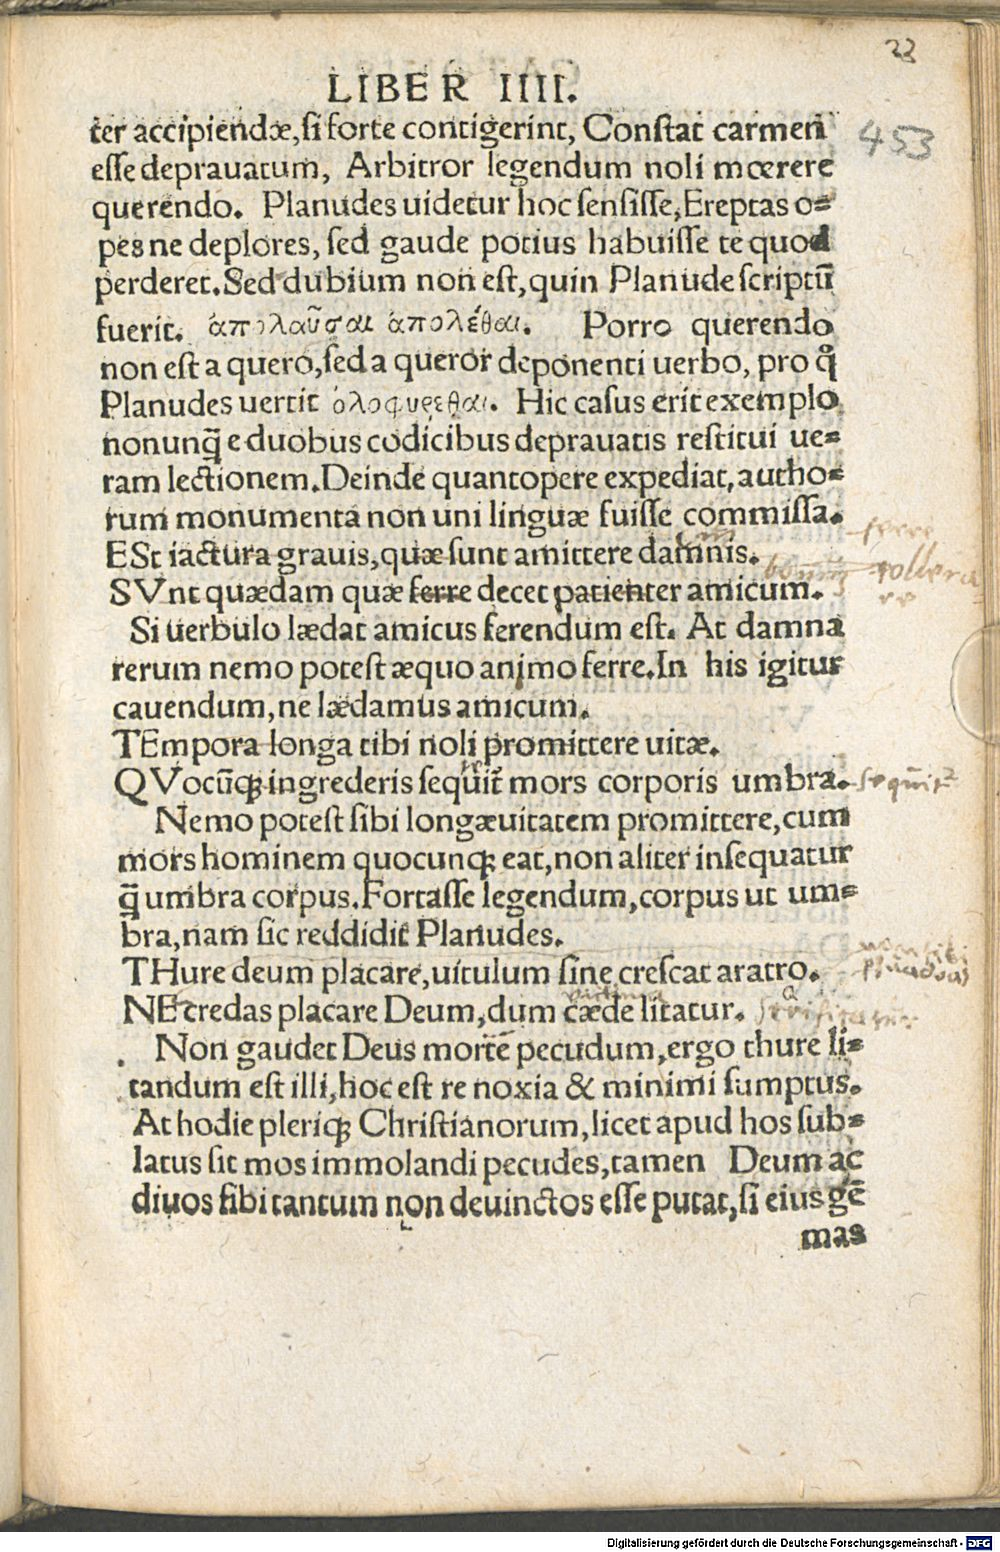 23
LIBER IIII.
453
ter accipiendæ, ſi forte contigerint, Conſtat carmen
eſſe deprauatum, Arbitror legendum noli mœrere
querendo. Planudes uidetur hoc ſenſiſſe, Ereptas o-
pes ne deplores, ſed gaude potius habuiſſe te quod
perderet. Sed dubium non eſt, quin Planude ſcriptū
fuerit. ἀπολαῦσαι ἀπολέθαι. Porro querendo
non eſt a quero, ſed a queror deponenti uerbo, pro q̊
Planudes uertit ὀλοφυρεθαι. Hic caſus erit exemplo
nonunq̄ e duobus codicibus deprauatis reſtitui ue-
ram lectionem. Deinde quantopere expediat, autho-
rum monumenta non uni linguæ fuiſſe commiſſa.
ESt iactura grauis, quæ ſunt amittere damnis.
ferre
SVnt quædam quæ ferre decet patienter amicum.
tollera
re
Si uerbulo lædat amicus ferendum eſt. At damna
rerum nemo poteſt æquo animo ferre. In his igitur
cauendum, ne lædamus amicum.
TEmpora longa tibi noli promittere uitæ.
QVocūq; ingrederis ſequit̃ mors corporis umbra.
Nemo poteſt ſibi longæuitatem promittere, cum
mors hominem quocunq; eat, non aliter inſequatur
q̄ umbra corpus. Fortaſſe legendum, corpus ut um-
bra, nam ſic reddidit Planudes.
THure deum placare, uitulum ſine creſcat aratro.
NE credas placare Deum, dum cæde litatur.
Non gaudet Deus mortē pecudum, ergo thure li-
tandum eſt illi, hoc eſt re noxia & minimi ſumptus.
At hodie pleriq; Chriſtianorum, licet apud hos ſub-
latus ſit mos immolandi pecudes, tamen Deum ac
diuos ſibi tantum non deuinctos eſſe putat, ſi eius gē
mas
Digitalisierung gefördert durch die Deutsche Forschungsgemeinschaft - DFG